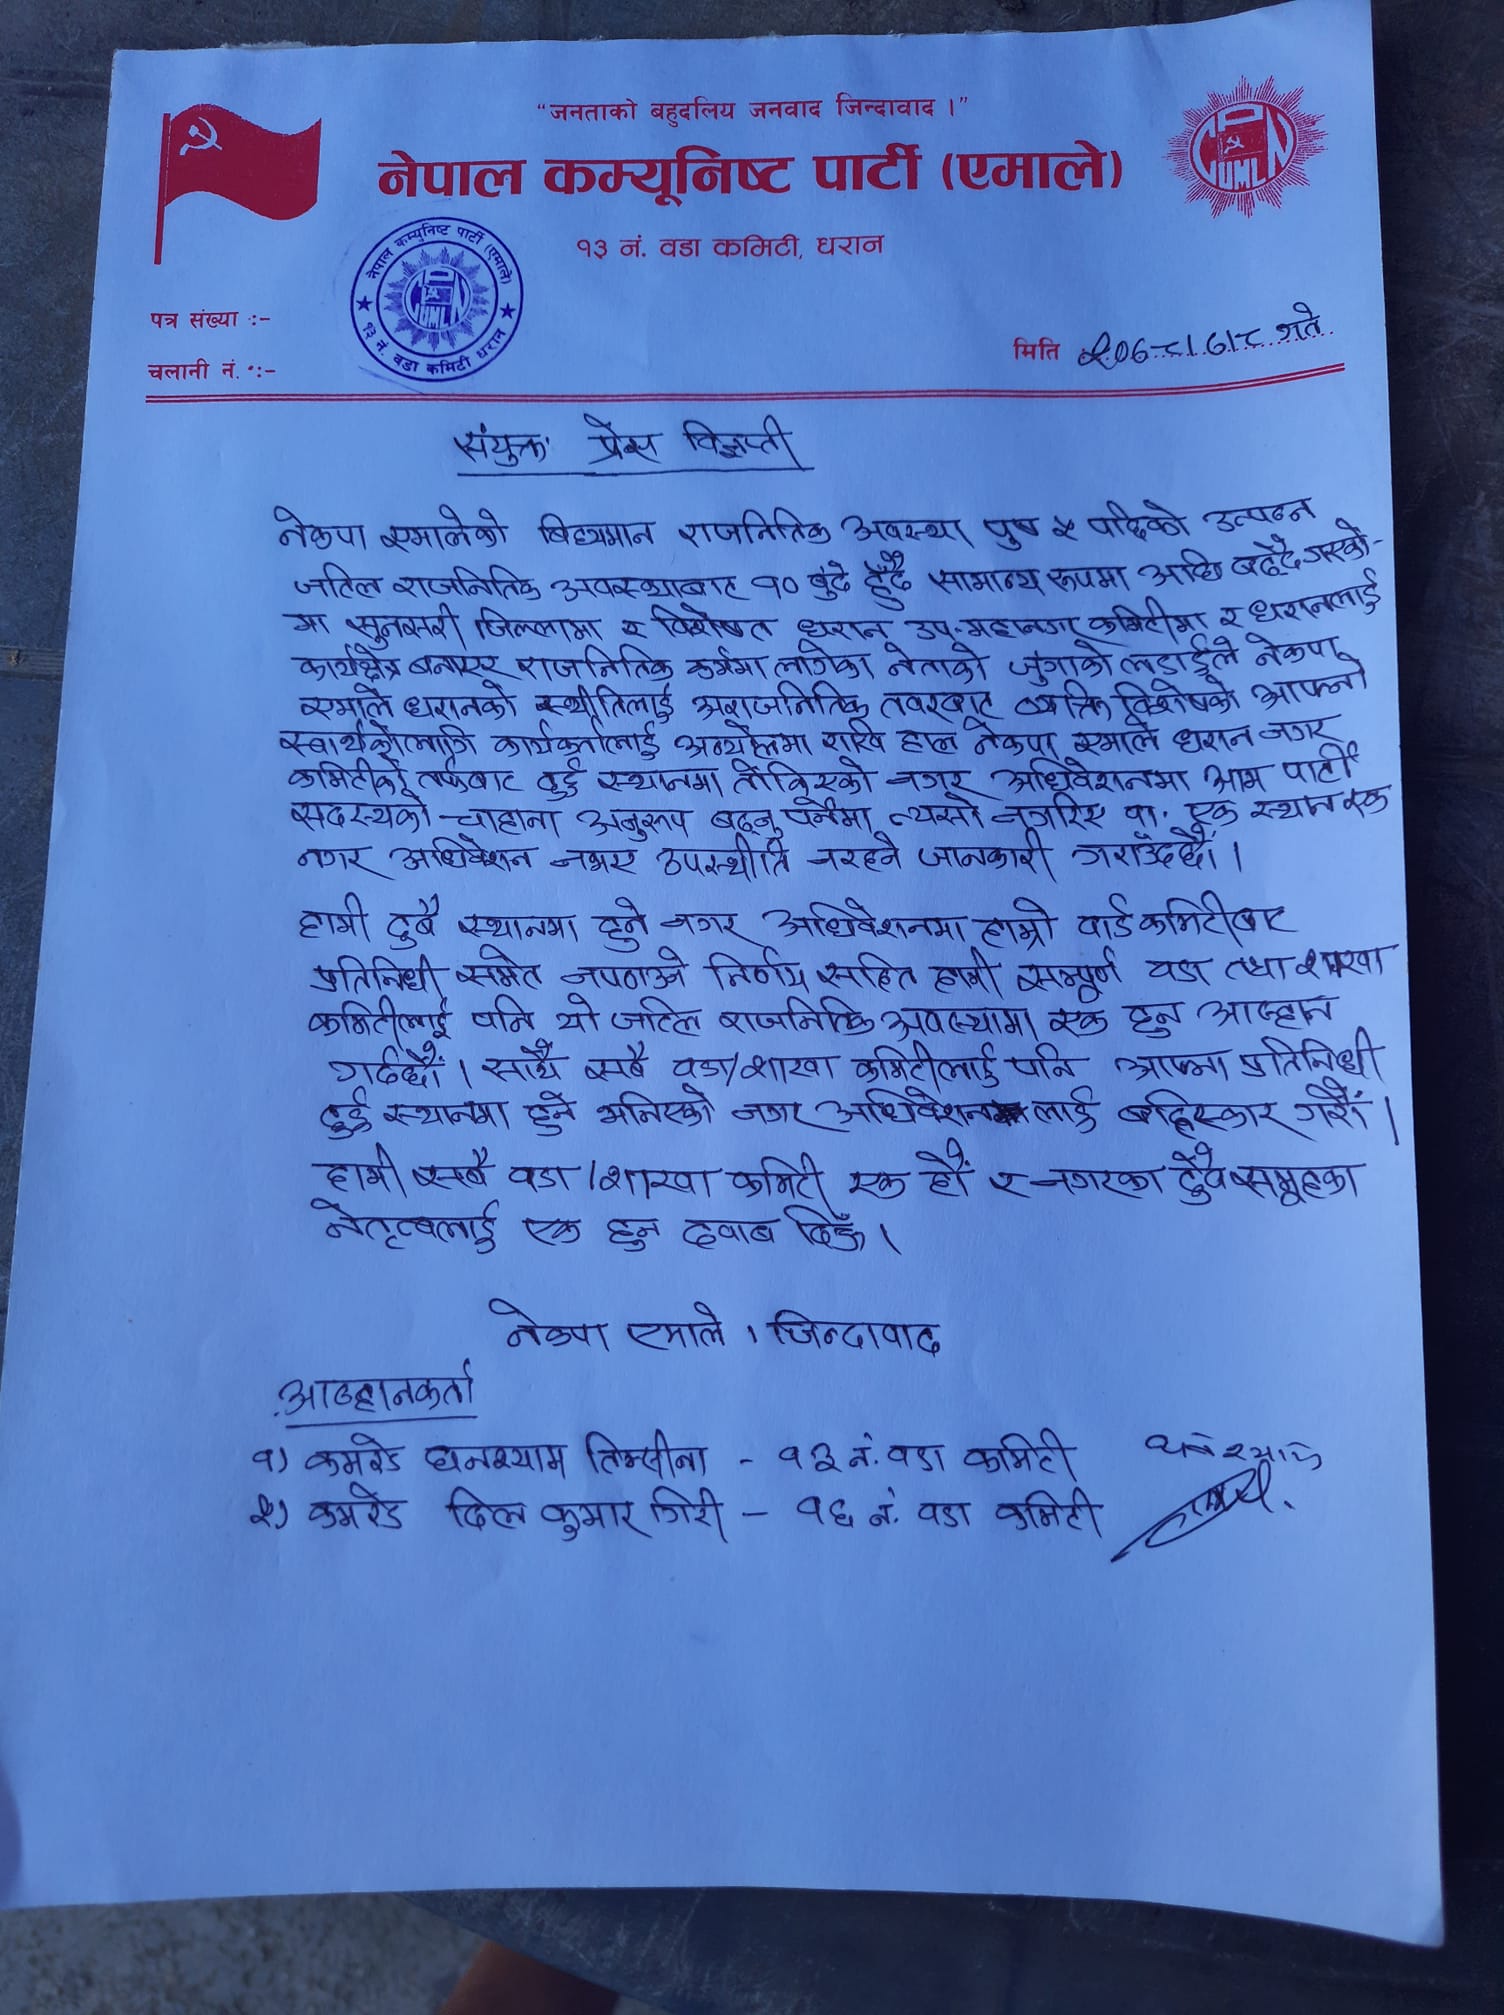 “जनताको बहुदलिय जनवाद जिन्दावाद ।”
नेपाल कम्यूनिष्ट पार्टी (एमाले)
CPN UML
१३ नं. वडा कमिटी, धरान
नेपाल कम्युनिष्ट पार्टी (एमाले)
१३ नं. वडा कमिटी धरान
पत्र संख्या :-
चलानी नं. :-
मिति २०७८।६।८ गते
संयुक्त प्रेस विज्ञप्ती
नेकपा एमालेको बिद्यमान राजनितिक अवस्था पुष ५ पछिको उत्पन्न
जटिल राजनितिक अवस्थाबाट १० बुंदे हुँदै सामान्य रूपमा अघि बढ्दै गएको-
मा सुनसरी जिल्लामा र विशेषत धरान उप-महानगर कमिटीमा र धरानलाई
कार्यक्षेत्र बनाएर राजनितिक कर्ममा लागेका नेताको जुंगाको लडाईले नेकपा
एमाले धरानको स्थीतिलाई अराजनितिक तवरबाट व्यक्ति विशेषको आफ्नो
स्वार्थकोलागि कार्यकर्तालाई अन्योलमा राखि हाल नेकपा एमाले धरान नगर
कमिटीको तर्फबाट दुई स्थानमा तोकिएको नगर अधिवेशनमा आम पार्टी
सदस्यको चाहाना अनुरूप बढ्नु पर्नेमा त्यसो नगरिए वा. एक स्थान एक
नगर अधिवेशन नभए उपस्थीति नरहने जानकारी गराउँदछौं ।
हामी दुबै स्थानमा हुने नगर अधिवेशनमा हाम्रो वार्ड कमिटीबाट
प्रतिनिधी समेत नपठाउने निर्णय सहित हामी सम्पूर्ण वडा तथा शाखा
कमिटीलाई पनि यो जटिल राजनितिक अवस्थामा एक हुन आव्हान
गर्दछौं । साथै सबै वडा/शाखा कमिटीलाई पनि आफ्ना प्रतिनिधी
दुई स्थानमा हुने भनिएको नगर अधिवेशनलाई बहिस्कार गरौं ।
हामी सबै वडा/शाखा कमिटी एक हौं र नगरका दुवै समूहका
नेतृत्वलाई एक हुन दवाब दिऊँ ।
नेकपा एमाले । जिन्दावाद
आव्हानकर्ता
१) कमरेड घनश्याम तिम्सीना - १३ नं. वडा कमिटी
२) कमरेड दिल कुमार गिरी - १६ नं. वडा कमिटी